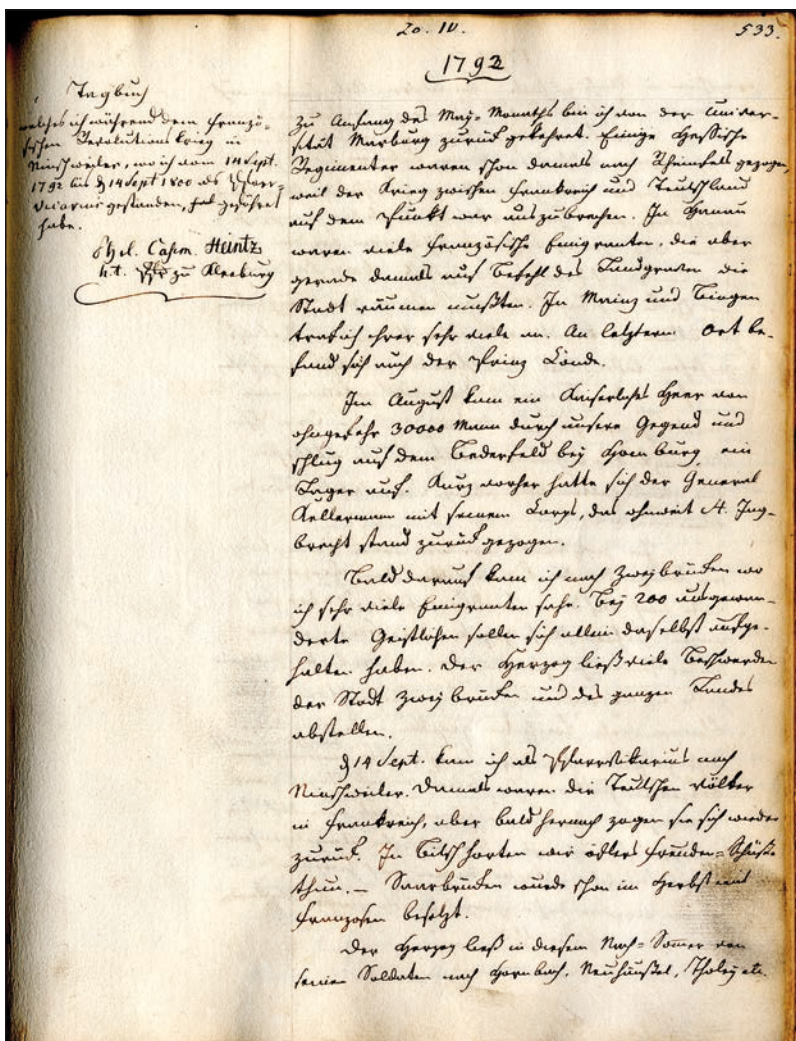 20. IV.
533.
1792
Tagbuch
welches ich während dem Franzö-
sischen Revolutions Krieg in
Ninschweiler, wo ich vom 14 Sept.
1792 bis d 14 Sept 1800 als Pfarr-
vicarius gestanden, geführet
habe.
Phil. Casim. Heintz
h.t. Pfr zu Kleeburg
Zu Anfang des May-Monaths bin ich von der Univer-
sität Marburg zurück gekehret. Einige Hessische
Regimenter waren schon damals nach Rheinfels gezogen,
weil der Krieg zwischen Frankreich und Teutschland
auf dem Punkt war auszubrechen. In Hanau
waren viele Französische Emigranten, die aber
gerade damals auf Befehl des Landgrafen die
Stadt räumen mußten. In Mainz und Bingen
traf ich ihrer sehr viele an. An letzterm Ort be-
fand sich auch der Prinz Conde.
Im August kam ein Kaiserliches Heer von
ohngefehr 30000 Mann durch unsere Gegend und
schlug auf dem Bederfeld bey Homburg ein
Lager auf. Kurz vorher hatte sich der General
Kellermann mit seinem Corps, das ohnweit St. Ing-
brecht stand zurück gezogen.
Bald darauf kam ich nach Zweybrücken wo
ich sehr viele Emigranten sahe. Bey 200 ausgewan-
derte Geistlichen sollen sich allein daselbst aufge-
halten haben. Der Herzog ließ viele Beschwerden
der Stadt Zweybrücken und des ganzen Landes
abstellen.
d 14 Sept. kam ich als Pfarrvikarius nach
Ninschweiler. Damals waren die Teutschen Völker
in Frankreich, aber bald hernach zogen sie sich wieder
zurück. In Bitsch hörten wir öfters Freuden-Schüsse
thun. – Saarbrücken wurde schon im Herbst mit
Franzosen besetzt.
Der Herzog ließ in diesem Nach-Sommer von
seinen Soldaten nach Hornbach, Neuhäusel, Tholey etc.